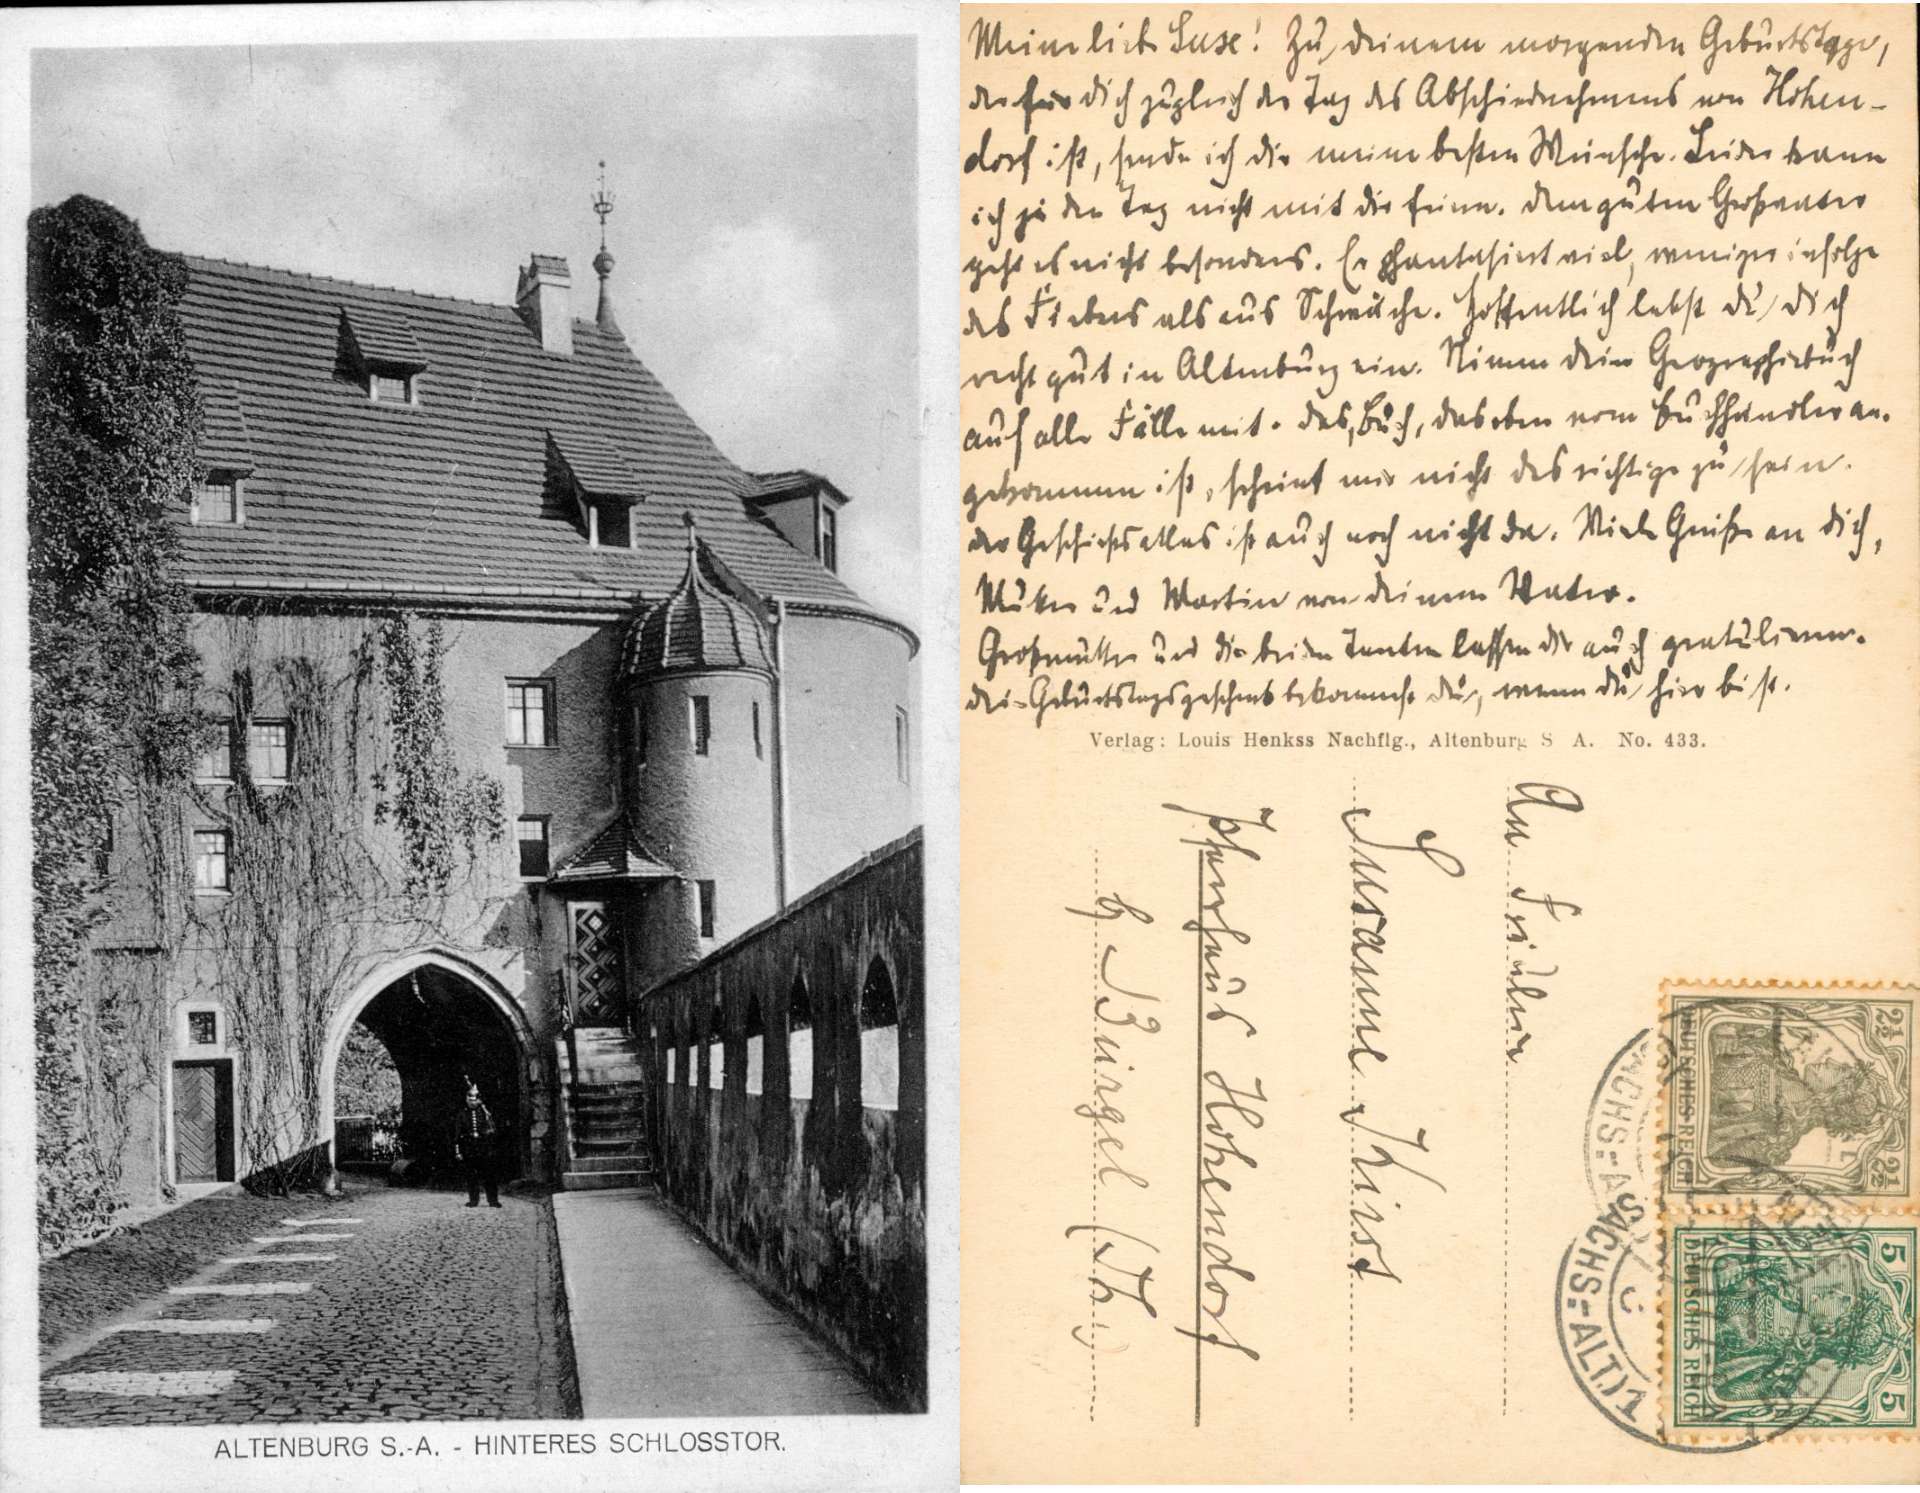 ALTENBURG S.-A. - HINTERES SCHLOSSTOR.
Meine liebe Suse! Zu deinem morgenden Geburtstage,
der für dich zugleich der Tag des Abschiednehmens von Hohen-
dorf ist, sende ich dir meine besten Wünsche. Leider kann
ich ja den Tag nicht mit dir feiern. Dem guten Großvater
geht es nicht besonders. Er phantasiert viel, weniger infolge
des Fiebers als aus Schwäche. Hoffentlich lebst du dich
recht gut in Altenburg ein. Nimm dein Geographiebuch
auf alle Fälle mit. Das Buch, das eben vom Buchhändler an-
gekommen ist, scheint mir nicht das richtige zu sein.
Der Geschichtsatlas ist auch noch nicht da. Viele Grüße an dich,
Mutter und Martin von deinem Vater.
Großmutter und die beiden Tanten lassen dir auch gratulieren.
Dein Geburtstagsgeschenk bekommst du, wenn du hier bist.
Verlag: Louis Henkss Nachflg., Altenburg S A. No. 433.
An Fräulein
Susanne Kirst
Pfarrhaus Hohendorf
b/ Bürgel (Th.)
2½ 2½
DEUTSCHES REICH
5 5
DEUTSCHES REICH
SACHS.-A
(SACHS.-ALT.)